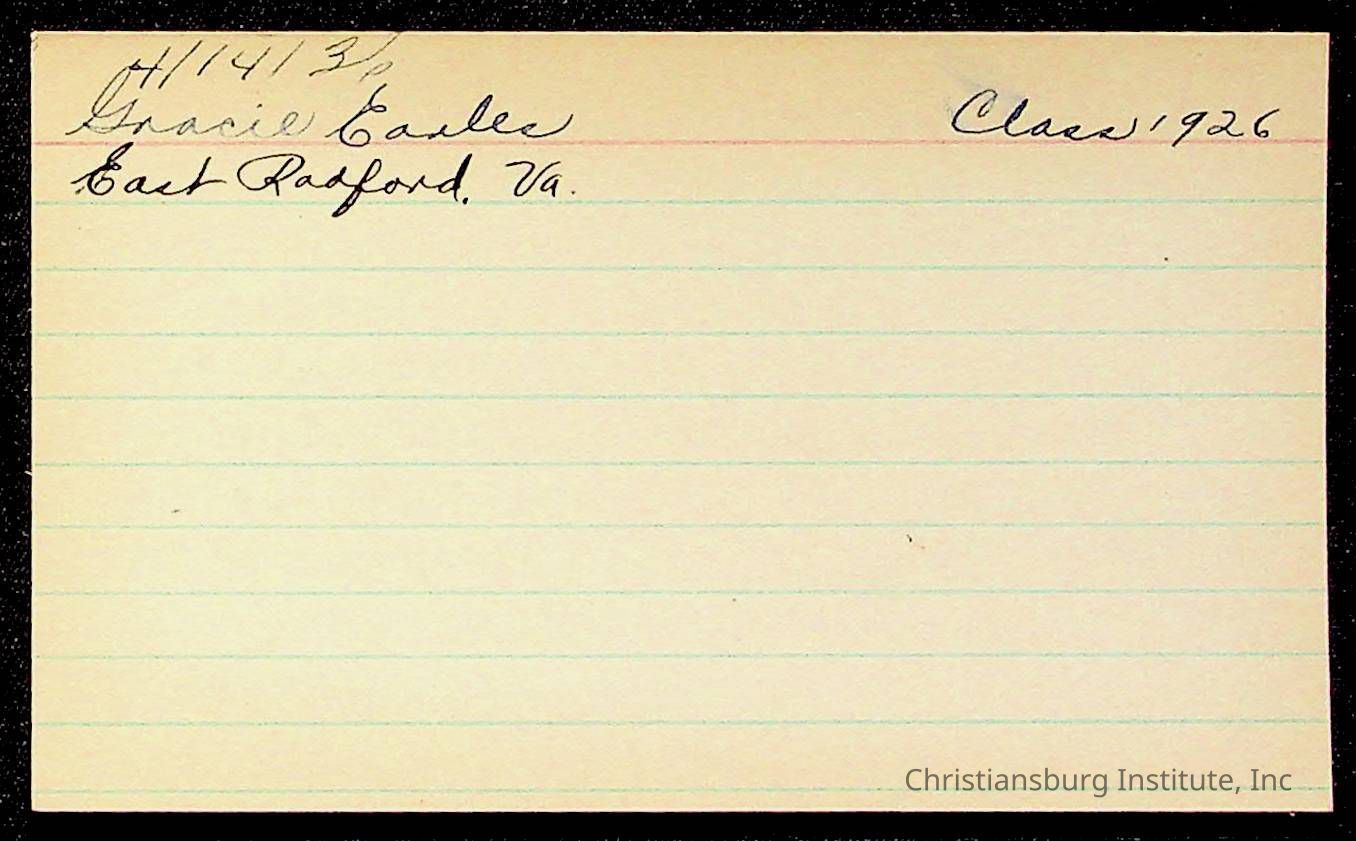 4/14/36
Gracie Earles Class 1926
East Radford, Va.
Christiansburg Institute, Inc